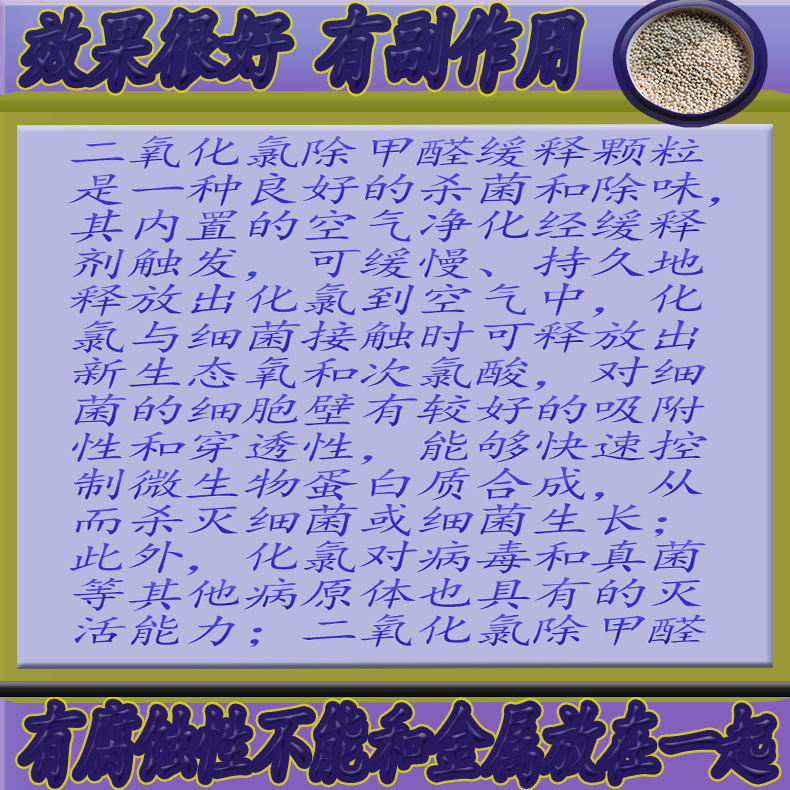 效果很好 有副作用
二氧化氯除甲醛缓释颗粒
是一种良好的杀菌和除味，
其内置的空气净化经缓释
剂触发，可缓慢、持久地
释放出化氯到空气中，化
氯与细菌接触时可释放出
新生态氧和次氯酸，对细
菌的细胞壁有较好的吸附
性和穿透性，能够快速控
制微生物蛋白质合成，从
而杀灭细菌或细菌生长；
此外，化氯对病毒和真菌
等其他病原体也具有的灭
活能力；二氧化氯除甲醛
有腐蚀性不能和金属放在一起